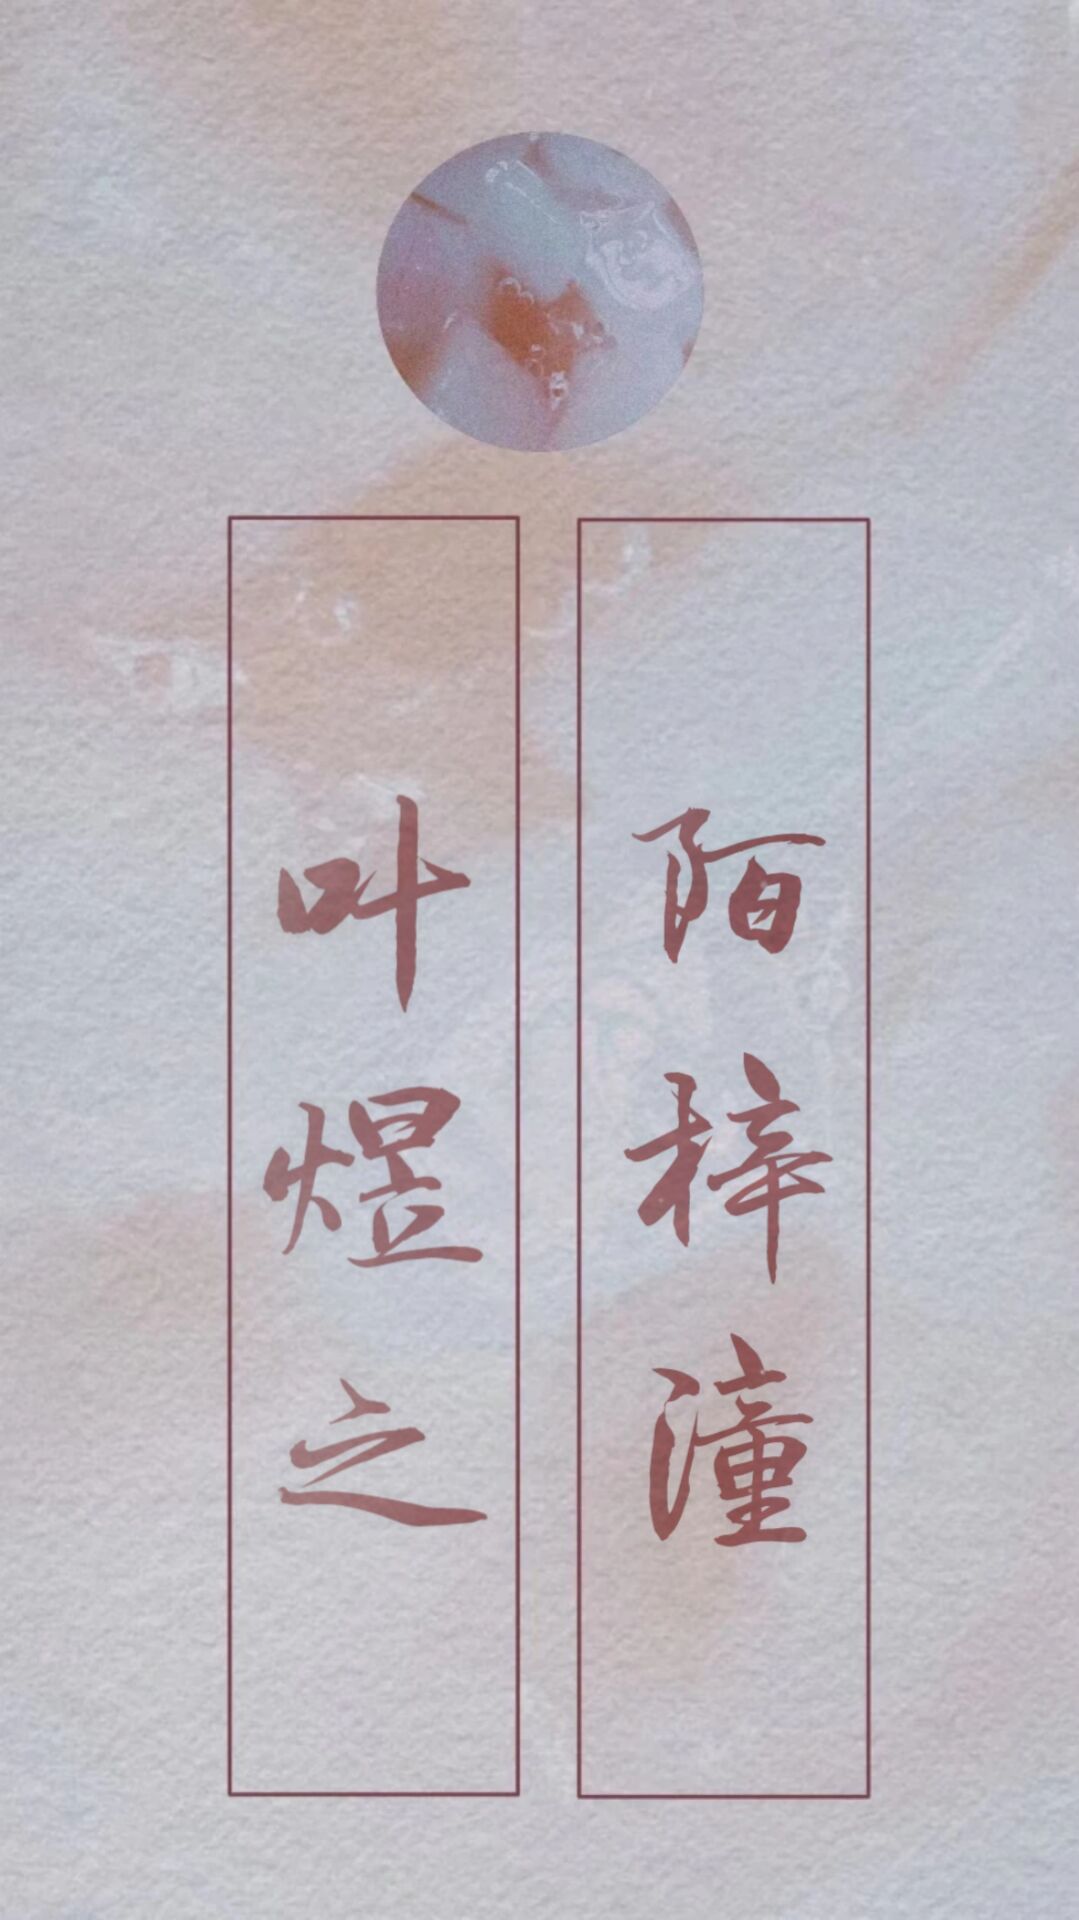 陌梓潼
叶煜之